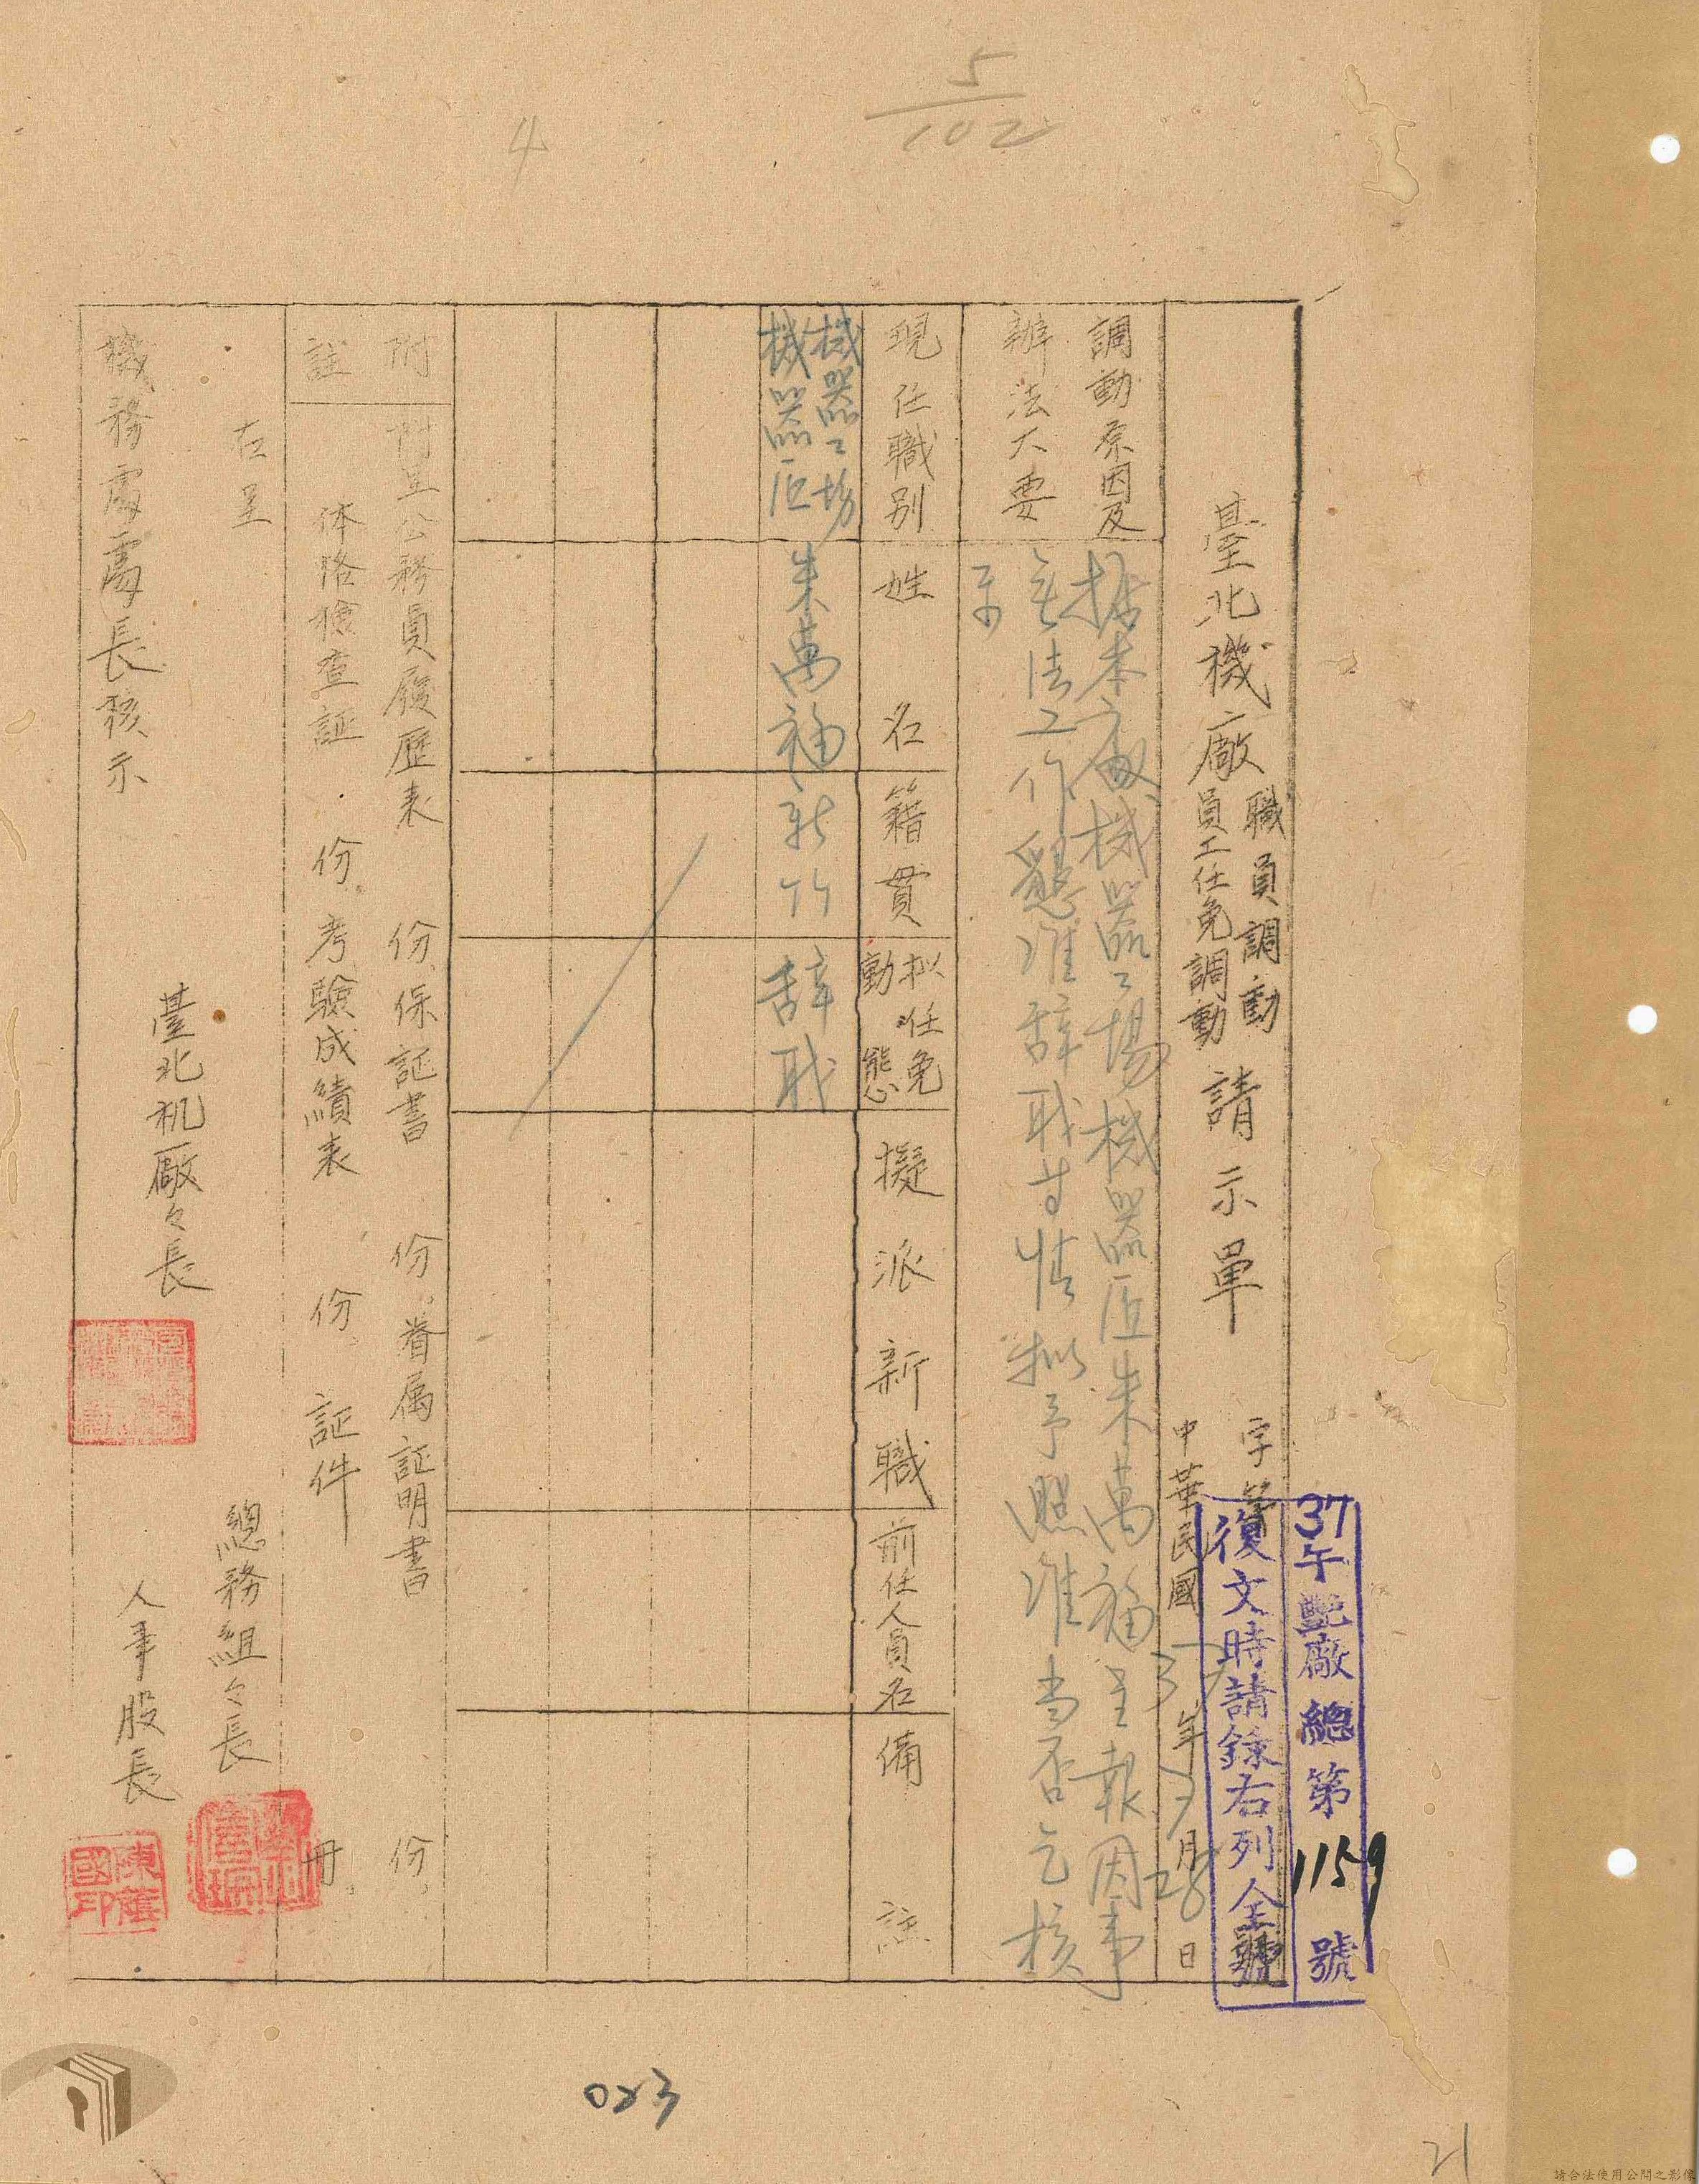 5/102
4
37午艷廠總第1159號
復文時請錄右列全號
臺北機廠
職員調動
員工任免調動
請示單
字第
中華民國37年7月28日
調動原因及
辦法大要
據本廠機器工場機器匠朱萬福呈報因事
無法工作懇准辭職等情擬予照准当否乞核
示
現任職別
姓名
籍貫
拟任免
動態
擬派新職
前任人員名
備註
機器工場
機器匠
朱萬福
新竹
辞職
附
註
附呈公務員履歷表 份、保証書 份、眷属証明書 份、
体格檢查証 份、考驗成績表 份、証件 冊、
右呈
機務處處長核示
臺北机廠々長
總務組々長
人事股長
陳華國印
023
21
請合法使用公開之影像